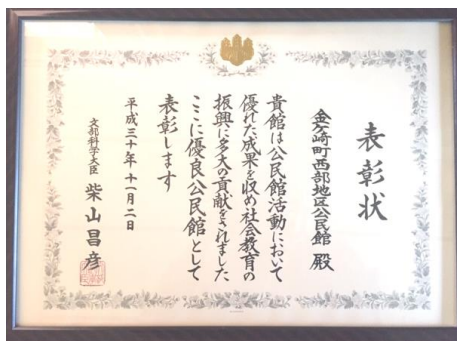 表彰状
金ケ崎町西部地区公民館 殿
貴館は公民館活動において
優れた成果を収め社会教育の
振興に多大の貢献をされました
ここに優良公民館として
表彰します
平成三十年十一月二日
文部科学大臣 柴山昌彦